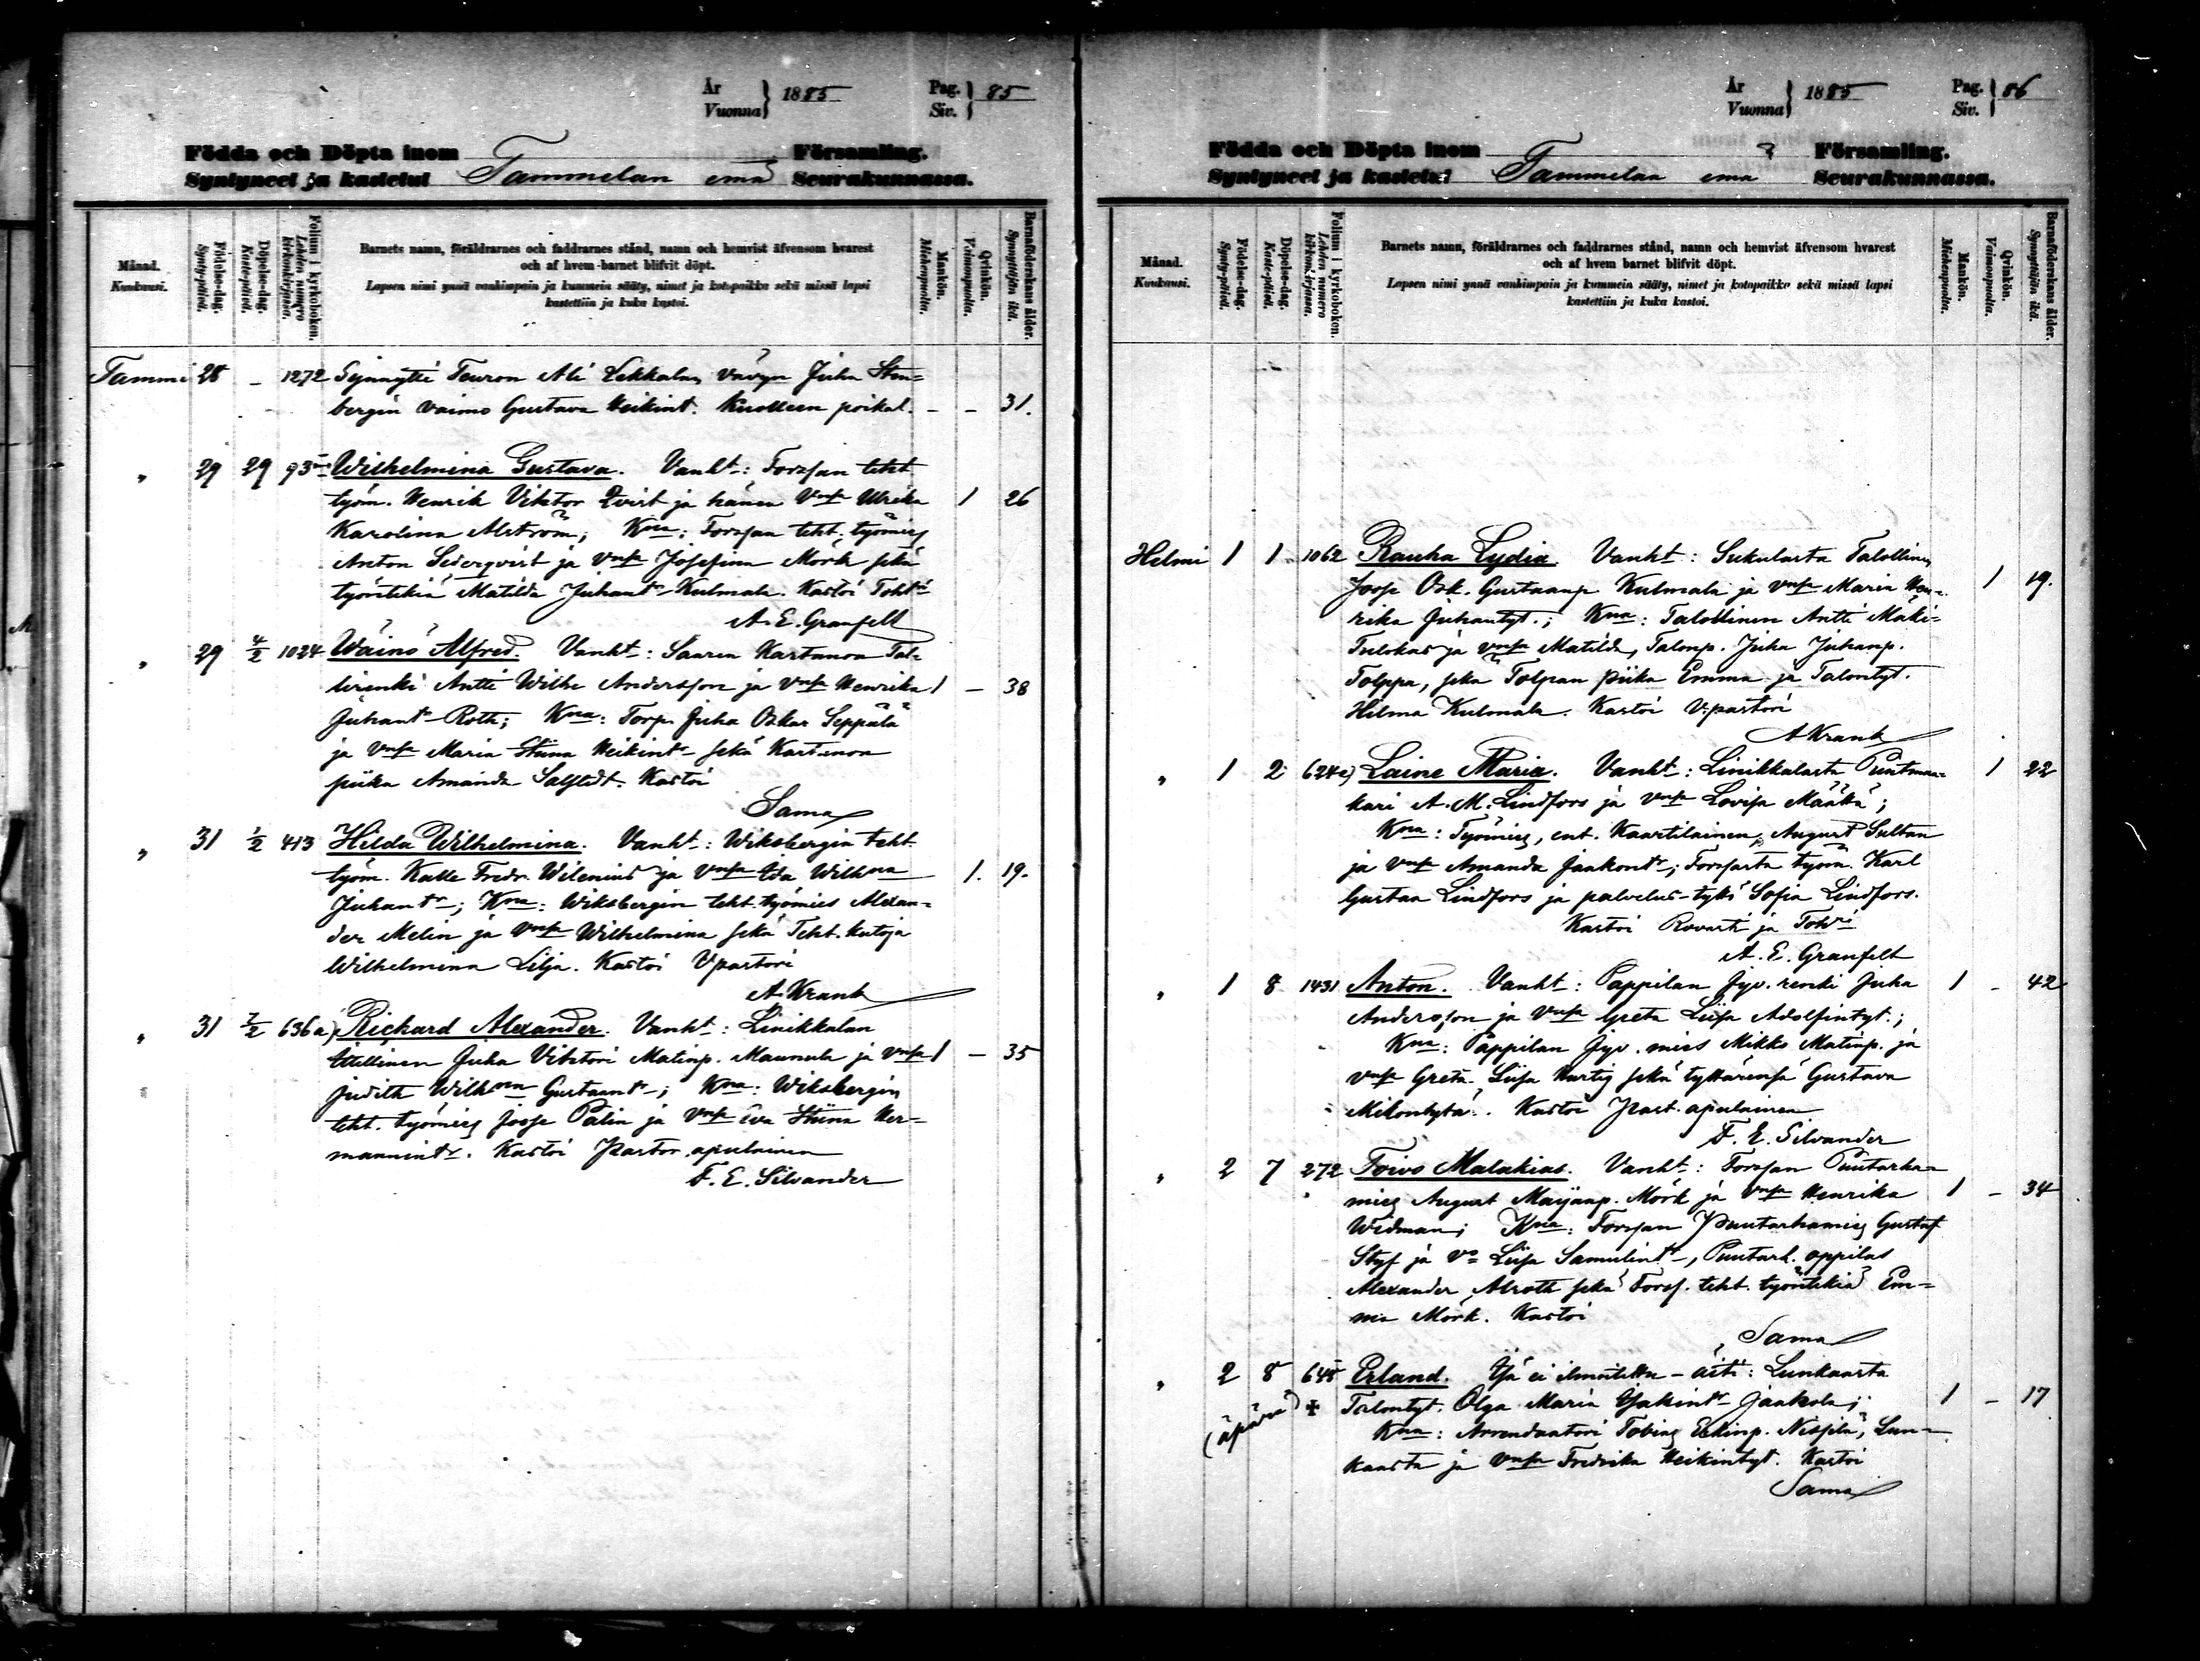 År
Vuonna } 1885
Pag.
Siv. } 85
Födda och Döpta inom Församling.
Syntyneet ja kastetut Tammelan emä Seurakunnassa.
Månad.
Kuukausi.
Födelse-dag.
Synty-päivä.
Döpelse-dag.
Kaste-päivä.
Folium i kyrkoboken.
Lehden numero kirkonkirjassa.
Barnets namn, föräldrarnes och faddrarnes stånd, namn och hemvist äfvensom hvarest
och af hvem barnet blifvit döpt.
Lapsen nimi ynnä vanhimpain ja kummein sääty, nimet ja kotopaikka sekä missä lapsi
kastettiin ja kuka kastoi.
Mankön.
Miehenpuolta.
Qvinkön.
Vaimonpuolta.
Barnaföderskans ålder.
Synnyttäjän ikä.
Tammi 28 – 1272 Synnytti Teuron Ali Lekkalan vävyn Juha Sten-
bergin vaimo Gustava Heikint. Kuolleen poikal. – – 31.
" 29 29 93 Wilhelmina Gustava. Vanht: Forssan teht.
työm. Henrik Viktor Qvist ja hänen Vnsa Ulrika 1 26
Karolina Alström; Kna: Forssan teht. työmies
Anton Sederqvist ja vnsa Josefina Mörk sekä
työntekiä Matilda Juhant. Kulmala. Kastoi Toht.
A. E. Granfelt
" 29 4/2 1024 Wäinö Alfred. Vanht: Saaren Kartanon Tal-
lirenki Antti Wilhe Andersson ja Vnsa Henrika 1 – 38
Juhant. Roth; Kna: Torp. Juha Oskar Seppälä
ja Vnsa Maria Stiina Heikint. sekä Kartanon
piika Amanda Salstedt. Kastoi
Sama
" 31 1/2 413 Hilda Wilhelmina. Vanht: Wiksbergin teht.
työm. Kalle Fredr. Wilenius ja Vnsa Ida Wilhna 1. 19.
Juhantr; Kna: Wiksbergin teht. työmies Alexan-
der Melin ja Vnsa Wilhelmina sekä Teht. kutoja
Wilhelmina Lilja. Kastoi Vpastori
A Krank
" 31 7/2 636a) Richard Alexander. Vanht: Linikkalan
itellinen Juha Viktori Matinp. Maunula ja vnsa 1 – 35
Judith Wilhna Gustavntr; Kna: Wiksbergin
teht. työmies Joose Palin ja Vnsa Eva Stiina Her-
mannintr. Kastoi Pastor. apulainen
F. E. Silvander
År
Vuonna } 1885
Pag.
Siv. } 86
Födda och Döpta inom Församling.
Syntyneet ja kastetut Tammelan emä Seurakunnassa.
Månad.
Kuukausi.
Födelse-dag.
Synty-päivä.
Döpelse-dag.
Kaste-päivä.
Folium i kyrkoboken.
Lehden numero kirkonkirjassa.
Barnets namn, föräldrarnes och faddrarnes stånd, namn och hemvist äfvensom hvarest
och af hvem barnet blifvit döpt.
Lapsen nimi ynnä vanhimpain ja kummein sääty, nimet ja kotopaikka sekä missä lapsi
kastettiin ja kuka kastoi.
Mankön.
Miehenpuolta.
Qvinkön.
Vaimonpuolta.
Barnaföderskans ålder.
Synnyttäjän ikä.
Helmi 1 1 1062 Rauha Lydia. Vanht: Sukulasta Talollinen
Joose Osk. Gustaanp Kulmala ja vnsa Maria Hen- 1 19.
rika Juhantyt.; Kna: Talollinen Antti Mäki-
Tulokas ja vnsa Matilda, Talonp. Juha Juhanp.
Tolppa, sekä Tolpan piika Emma ja Talontyt.
Hilma Kulmala. Kastoi V.pastori
A Krank
" 1 2 624a) Laine Maria. Vanht: Linikkalasta Puutman- 1 22
kari A. M. Lindfors ja vnsa Lovisa Määttä;
Kna: Työmies, ent. Kaartilainen, August Sultan
ja Vnsa Amanda Jaakontr; Forssasta työm. Karl
Gustaa Lindfors ja palvelus-tyttö Sofia Lindfors.
Kastoi Rovasti ja Tohri
A. E. Granfelt
" 1 8 1431 Anton. Vanht: Pappilan Jyv. renki Juha 1 – 42
Andersson ja Vnsa Greta Liisa Adolfintyt.;
Kna: Pappilan Jyv. mies Mikko Matinp. ja
vnsa Greta Liisa Hartig sekä tyttärensä Gustava
Mikontytä. Kastoi Past. apulainen
F. E. Silvander
" 2 7 272 Toivo Malakias. Vanht: Forssan Puutarha-
mies August Maijanp. Mörk ja Vnsa Henrika 1 – 34
Widman; Kna: Forssan Puutarhamies Gustaf
Styf ja Vo Liisa Samulintr, Puutarh. oppilas
Alexander Alroth sekä Forss. teht. työntekiä Em-
ma Mörk. Kastoi
Sama
" 2 8 648 Erland. Isä ei ilmoitettu – äiti: Lunkaasta
(äpärä) Talontyt. Olga Maria Isakintr Jaakola; 1 – 17
Kna: Arrendaatori Tobias Eskinp. Nissilä, Lun-
kaasta ja vnsa Fredrika Heikintyt. Kastoi
Sama